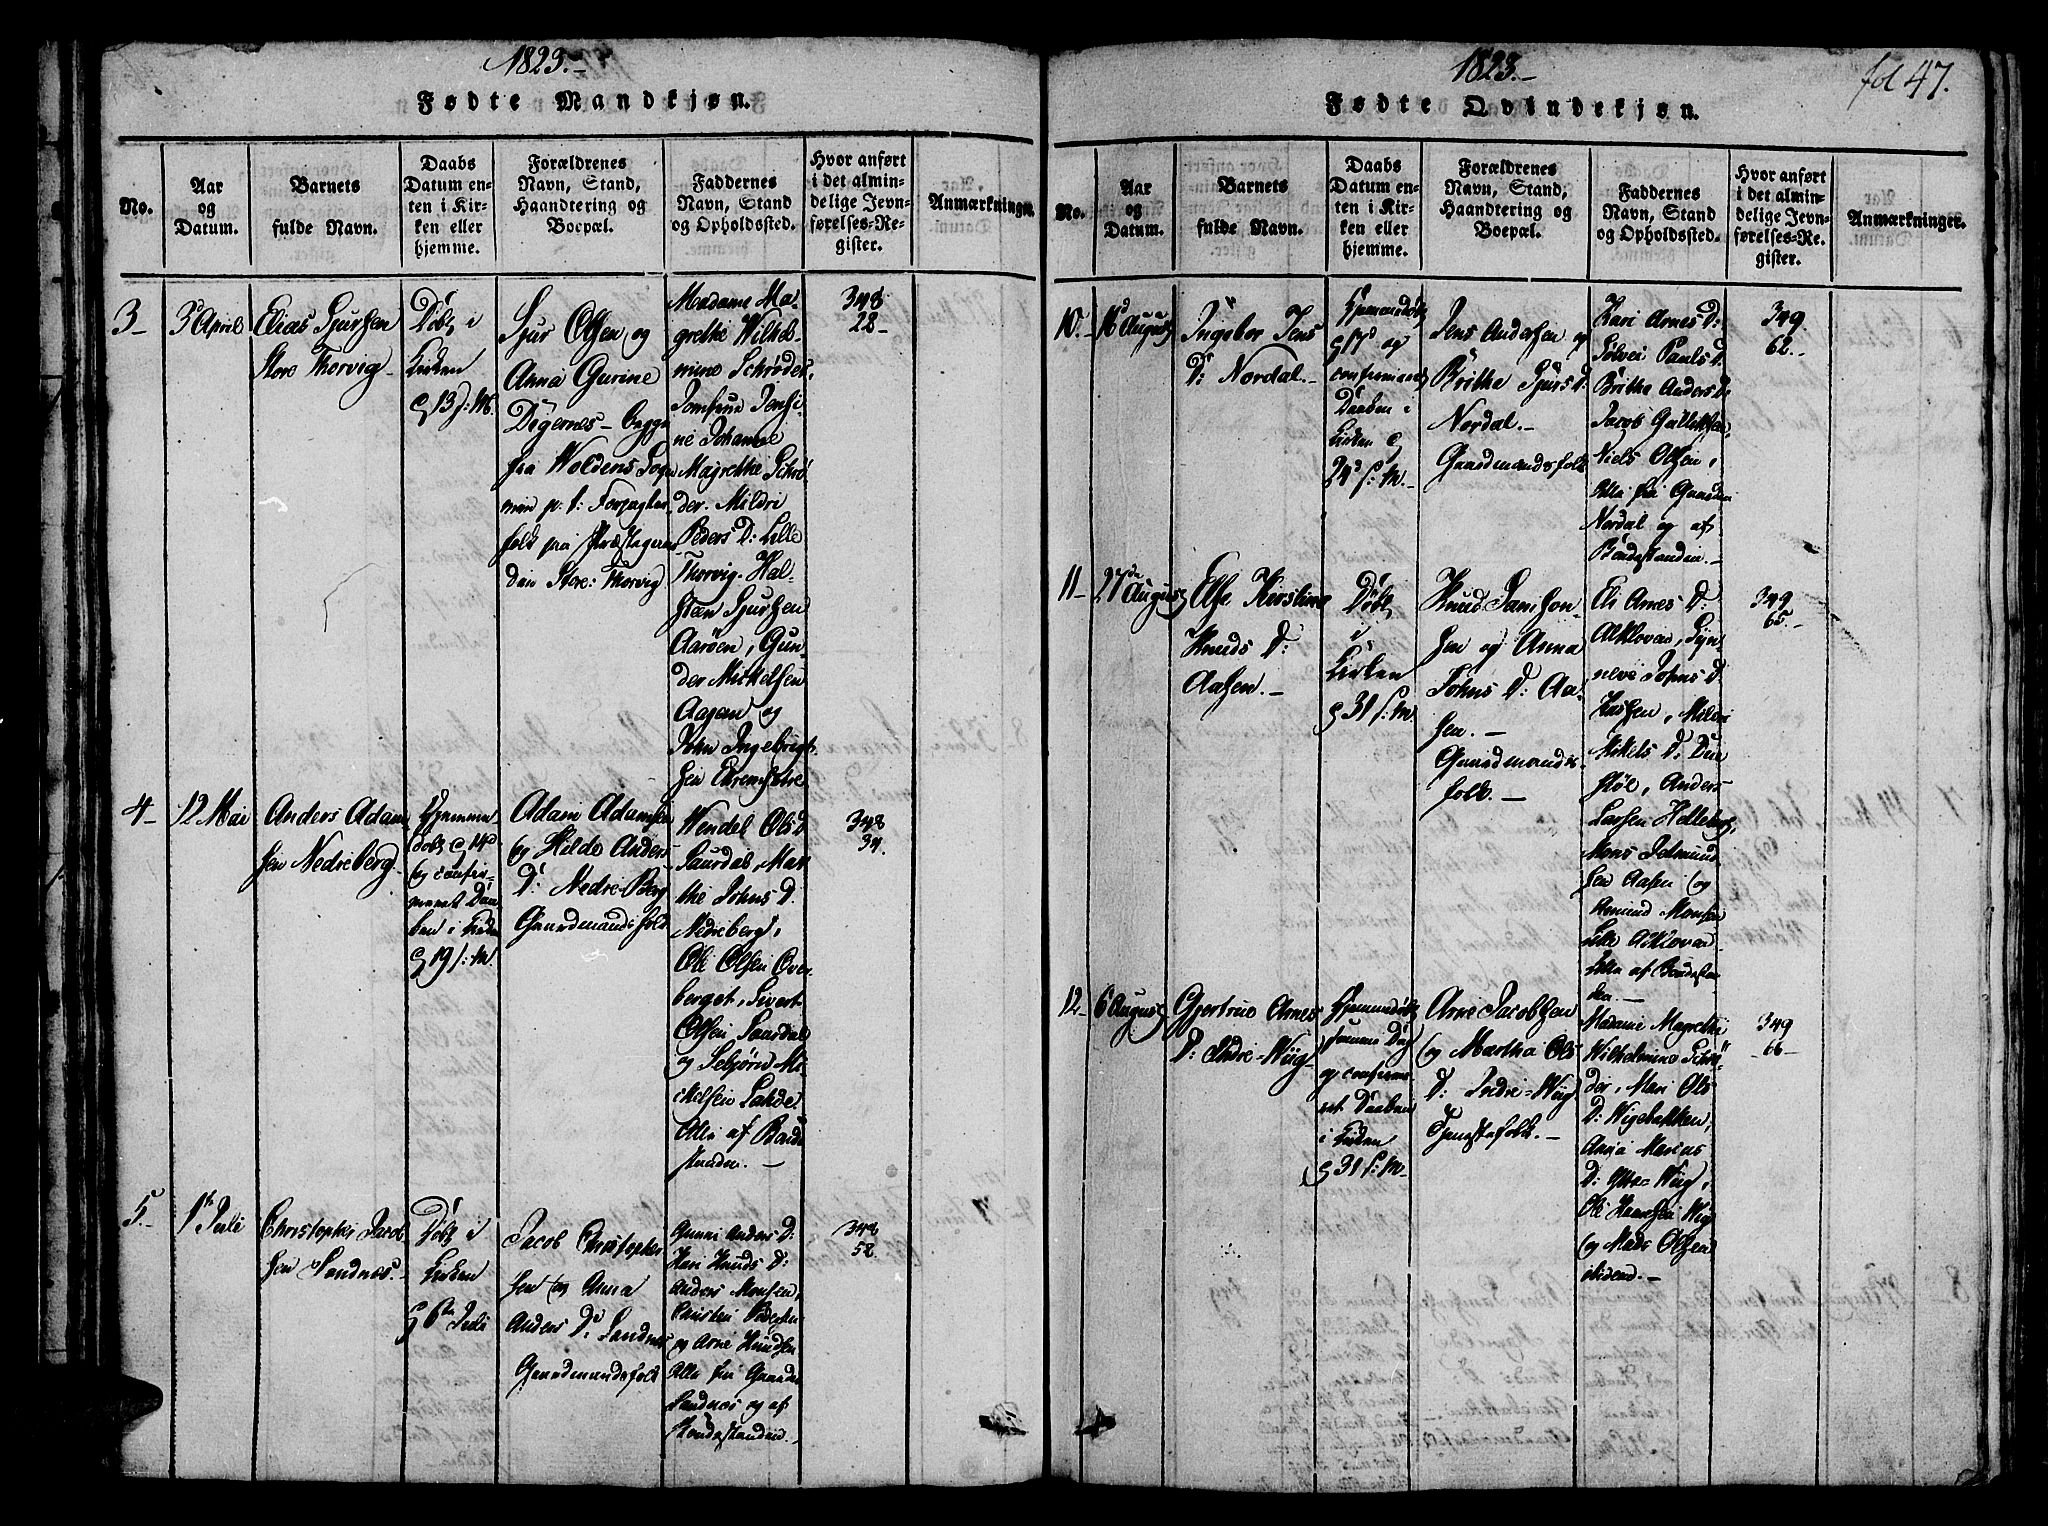 1823.-
Fødte Mandkjøn.
No.
Aar
og
Datum.
Barnets
fulde Navn.
Daabs
Datum en-
ten i Kir-
ken eller
hjemme.
Forældrenes
Navn, Stand,
Haandtering og
Boepæl.
Faddernes
Navn, Stand
og Opholdssted.
Hvor anført
i det almin-
delige Jevn-
førelses-Re-
gister.
Anmærkninger.
3-
3 April
Elias Sjursen
Store Thorvig
Døbt i
Kirken
d 13 s: M.
Sjur Olsen og
Anna Gurine
Digernes - begge
fra Woldens Sogn
folk paa Præstegaar-
den Store: Thorvig
Madame Ma-
grethe Wilhel-
mine Schrøder,
Jomfrue Jensi-
ne Johanne
Magrethe Schrø-
der. Mildri
Peders D: Lille
Thorvig. Hal-
sten Sjursen
Aarøen, Gun-
der Mickelsen
Aagaen og
John Ingebrigt-
sen
348
28-
4-
12 Mai
Anders Adam-
sen Nedreberg
Hjemme-
døbt d 14d
og confir-
meret Daa-
ben i Kirken
d 19 s: M.
Adam Adamsen
og Hilde Anders
D: Nedre-Berg
Gaardmandsfolk
Wendel Ols D
Saurdal, Mar-
the Johns D.
Nedreberg,
Ole Olsen Over-
berget, Sivert
Olsen Saurdal
og Sebjørn Mi-
ckelsen Lahde
Alle af Bonde-
standen. -
348
34.
5.-
1 Juli
Christopher Jacob
sen Sandnes.-
Døbt i
Kirken
d 6te Juli
Jacob Christopher
sen og Anna
Anders D: Sandnes
Gaardmandsfolk
Gunni Anders D:
Kari Knuds D:
Anders Monsen,
Christen Pedersen
og Arne Knudsen
Alle fra Gaarden
Sandnes og af
Bondestanden.-
348
52
1823.-
fol 47.
Fødte Qvindekjøn.
No.
Aar
og
Datum.
Barnets
fulde Navn.
Daabs
Datum en-
ten i Kir-
ken eller
hjemme.
Forældrenes
Navn, Stand,
Haandtering og
Boepæl.
Faddernes
Navn, Stand
og Opholdssted.
Hvor anført
i det almin-
delige Jevn-
førelses-Re-
gister.
Anmærkninger.
10.-
16 August
Ingebor Jens
D: Nordal.-
Hjemmedøbt
d 17 og
confirmeret
Daaben i
Kirken d
24 s: M.-
Jens Andersen og
Brithe Sjurs D:
Nordal.-
Gaardmandsfolk
Kari Arnes D:
Solvei Pauls D.
Brithe Anders D:
Jacob Gullecksen
Niels Olsen,
Alle fra Gaarden
Nordal og af
Bondestanden.-
349
62.-
11-
27de August
Else Kirstine
Knuds D:
Aasen.-
Døbt
i
Kirken
d 31 s: M.
Knud Samson-
sen og Anna
Johns D: Aa-
sen.-
Gaardmands-
folk.-
Eli Arnes D:
Alklovar, Syn-
neve Johns D
Mildri
Mikels D:
støl, Anders
Larsen
Mons Salmund
sen Aasen og
Monsen
Lille Alklovar
Alle af Bondestan-
den.-
349
65.-
12-
6 August
Gjertrue Arnes
D: Indre-Wiig
Hjemmedøbt
samme Dag
og confirme-
ret Daaben
i Kirken
d 31 s: M-
Arne Jacobsen
og Martha Ols
D: Indre-Wiig
Tjenestefolk.-
Madame Magrethe
Wilhelmine Schrø-
der, Mari Ols
D: Wigebakken,
Anna Marias
D: Ytre-Wiig,
Ole Hansen Wiig
og Mads Olsen
ibidem.-
349
-66-